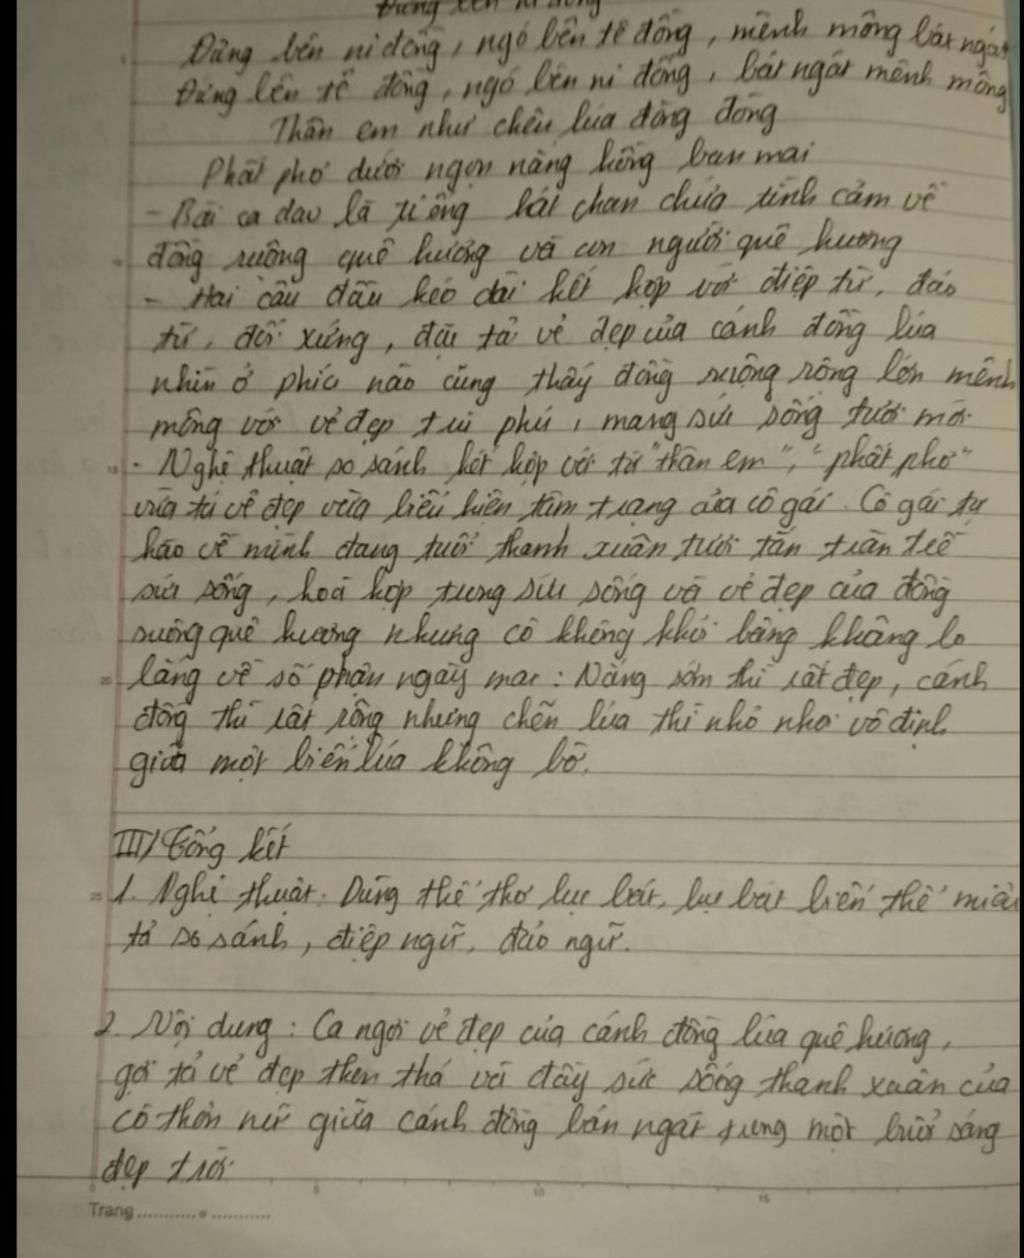 Đứng bên ni đồng, ngó bên tê đồng, mênh mông bát ngát
Đứng bên tê đồng, ngó bên ni đồng, bát ngát mênh mông
Thân em như chẽn lúa đòng đòng
Phất phơ dưới ngọn nắng hồng ban mai
- Bài ca dao là tiếng hát chan chứa tình cảm về
đồng ruộng quê hương và con người quê hương
- Hai câu đầu kéo dài kết hợp với điệp từ, đảo
từ, đối xứng, đặc tả vẻ đẹp của cánh đồng lúa
nhìn ở phía nào cũng thấy đồng ruộng rộng lớn mênh
mông với vẻ đẹp trù phú, mang sức sống tươi mới
- Nghệ thuật so sánh kết hợp với từ "thân em", "phất phơ"
vừa tả vẻ đẹp vừa biểu hiện tâm trạng của cô gái. Cô gái tự
hào về mình đang tuổi thanh xuân tươi tắn tràn trề
sức sống, hoà hợp trong sức sống và vẻ đẹp của đồng
ruộng quê hương nhưng cô không khỏi bâng khuâng lo
lắng về số phận ngày mai: Nắng sớm thì rất đẹp, cánh
đồng thì rất rộng nhưng chẽn lúa thì nhỏ nhoi vô định
giữa một biển lúa không bờ.
III/ Tổng kết
1. Nghệ thuật: Dùng thể thơ lục bát, lục bát biến thể miêu
tả so sánh, điệp ngữ, đảo ngữ.
2. Nội dung: Ca ngợi vẻ đẹp của cánh đồng lúa quê hương,
gợi tả vẻ đẹp thon thả và đầy sức sống thanh xuân của
cô thôn nữ giữa cánh đồng bán ngát trong một buổi sáng
đẹp trời
20
25
0 5 10 15
Trang